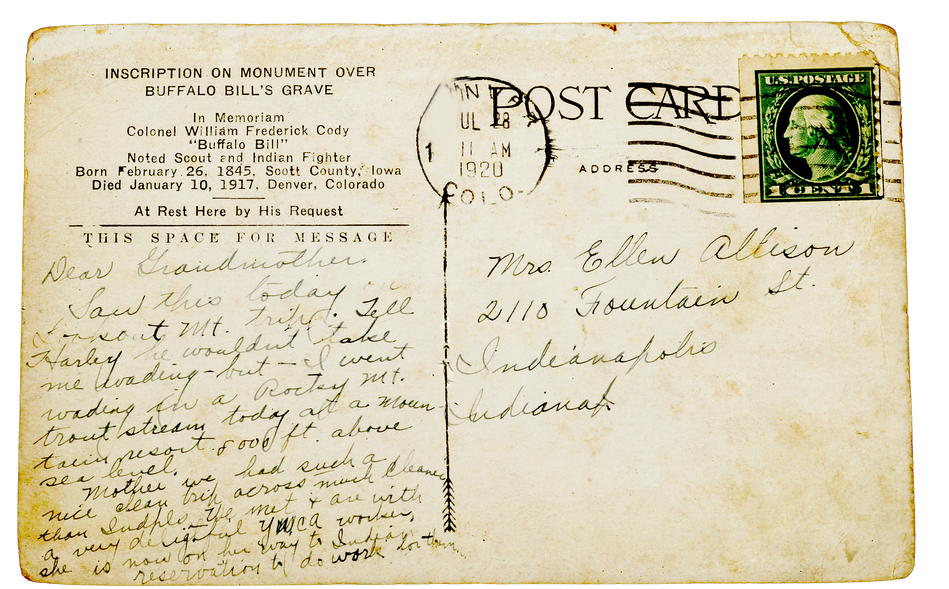 INSCRIPTION ON MONUMENT OVER
BUFFALO BILL'S GRAVE
In Memoriam
Colonel William Frederick Cody
"Buffalo Bill"
Noted Scout and Indian Fighter
Born February 26, 1845, Scott County, Iowa
Died January 10, 1917, Denver, Colorado
At Rest Here by His Request
THIS SPACE FOR MESSAGE
Dear Grandmother.
Saw this today on
Lookout Mt. trip. Tell
Harley he wouldn't take
me wading - but - I went
wading in a Rocky Mt.
trout stream today at a moun-
tain resort 8000 ft. above
sea level.
Mother we had such a
nice clean trip across much cleaner
than Indpls. We met & are with
a very delightful YWCA worker,
she is now on her way to Indian
reservation to do work
POST CARD
28
11 AM
1920
COLO.
ADDRESS
U.S. POSTAGE
1 CENT 1
Mrs. Ellen Allison
2110 Fountain St.
Indianapolis
Indiana